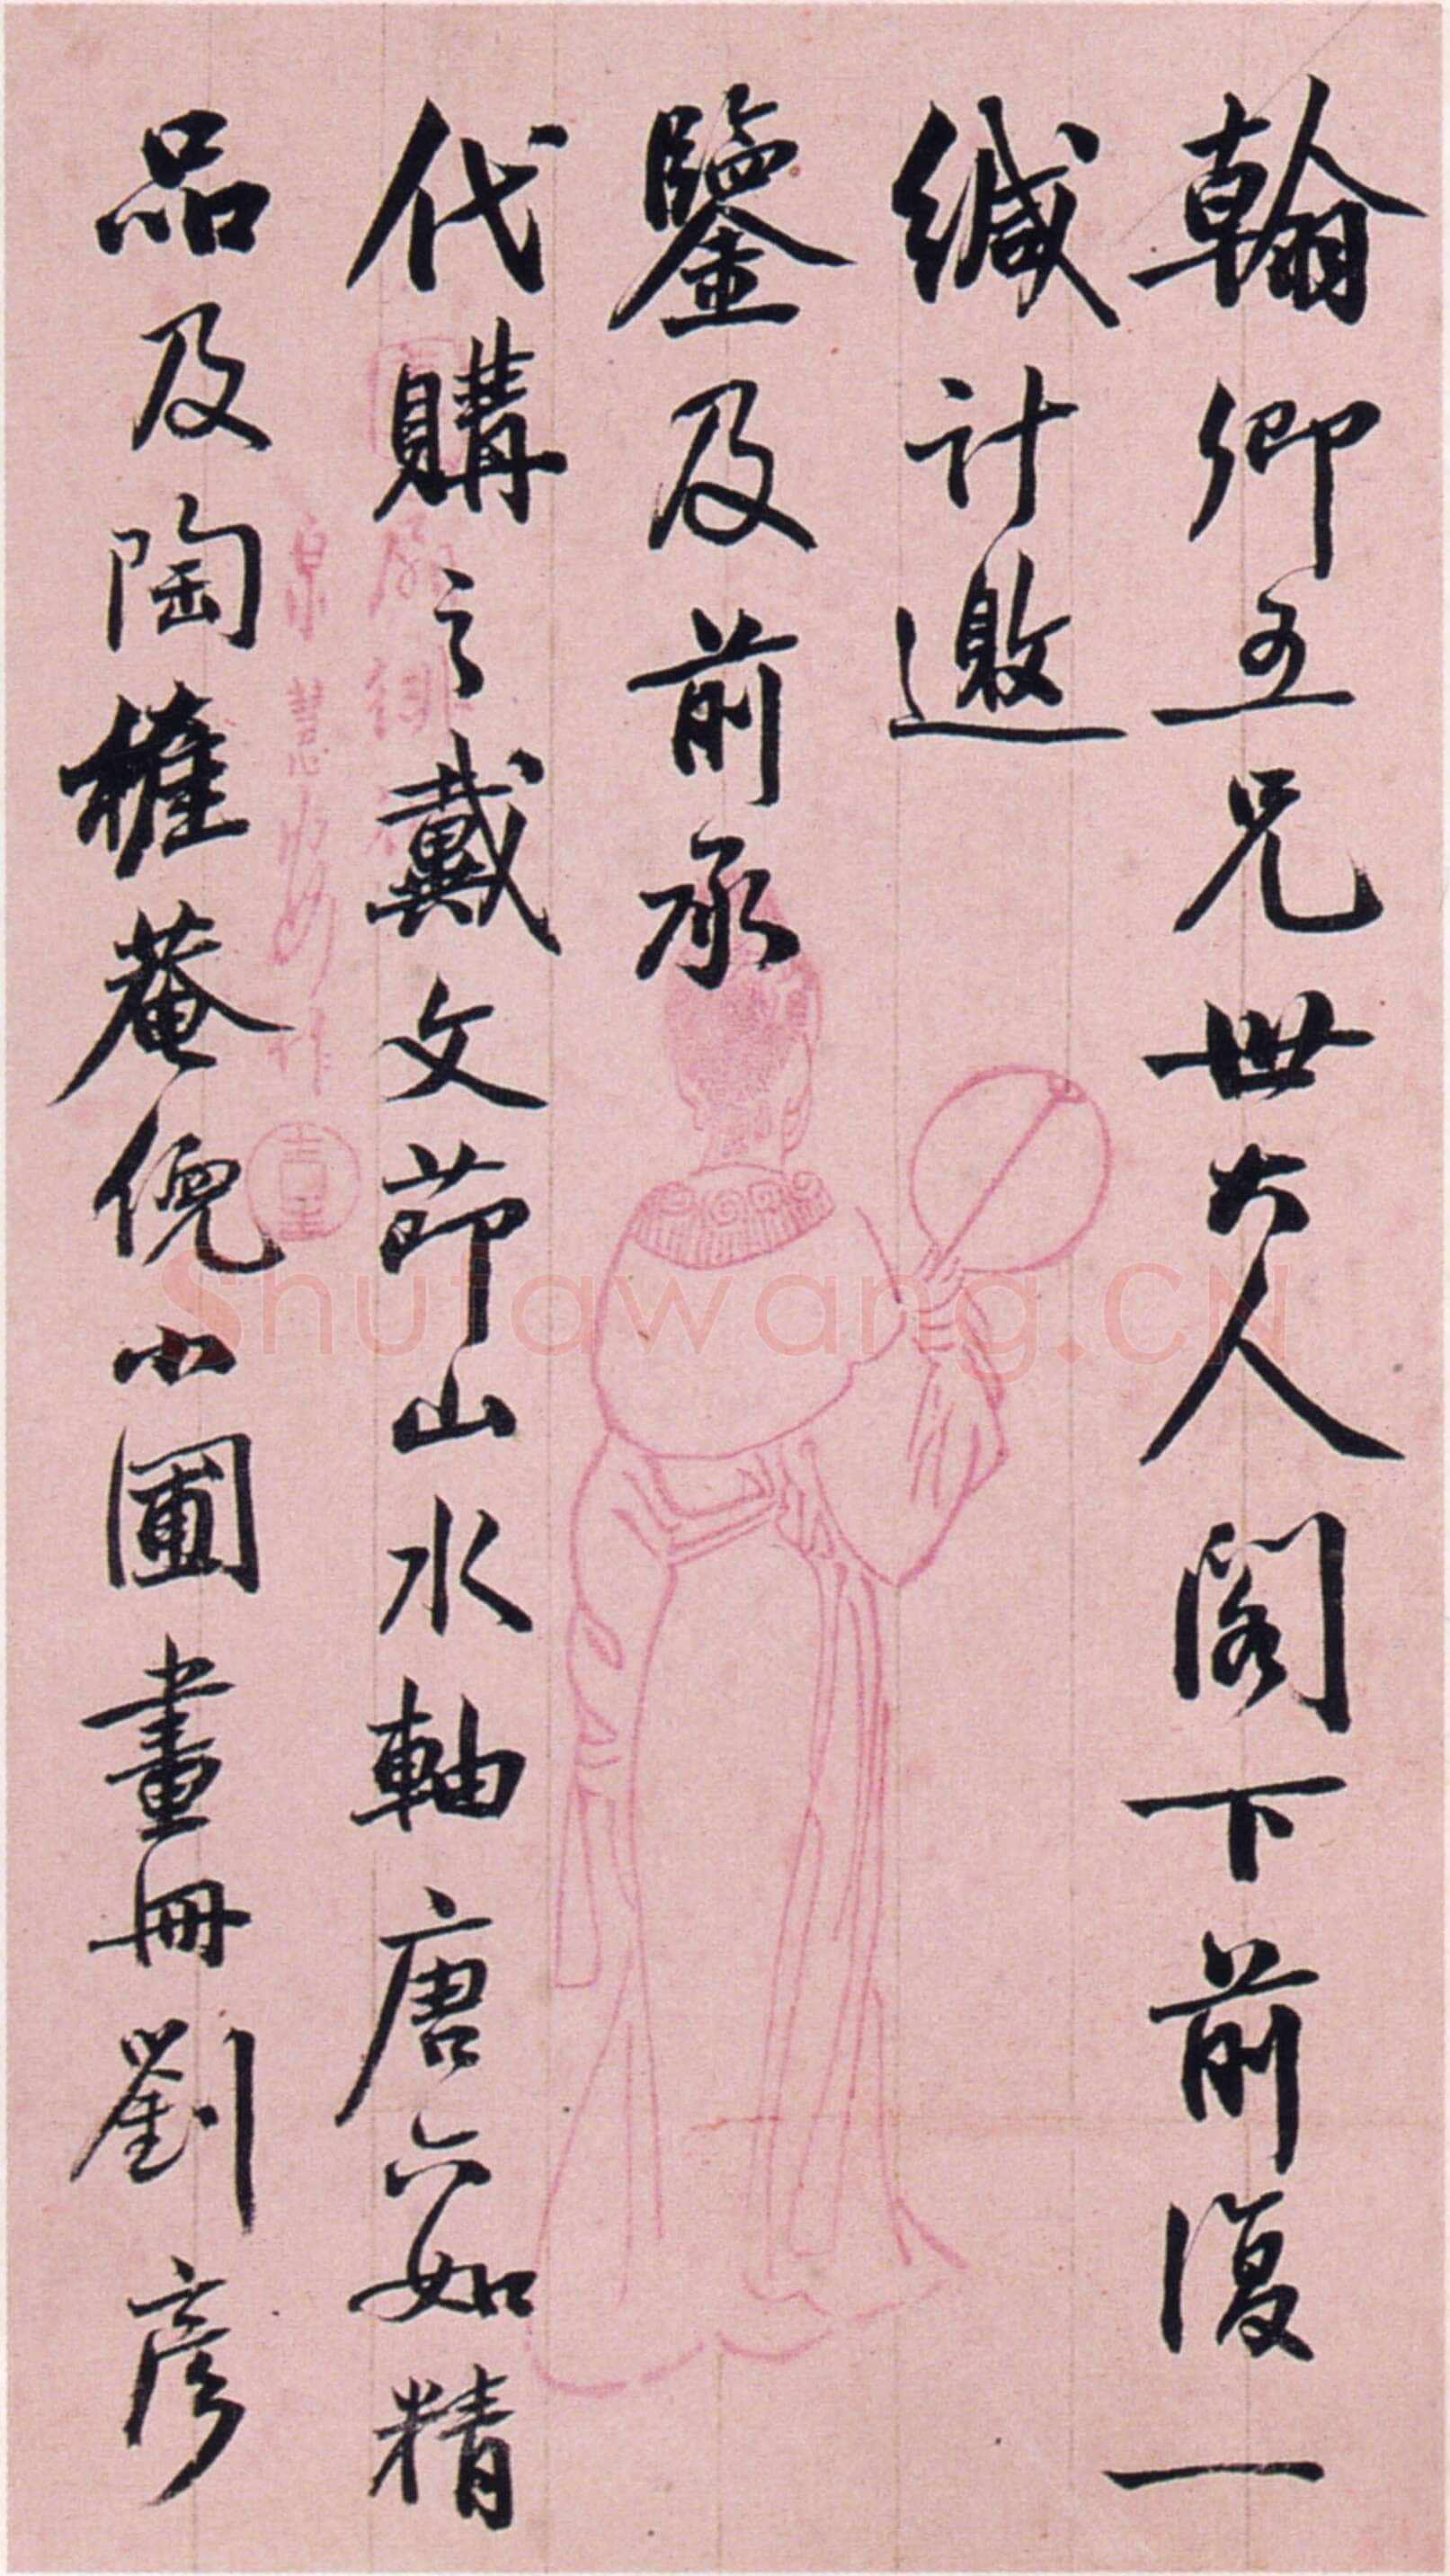 翰卿五兄世大人閣下前復一
緘計邀
鑒及前承
代購之戴文節山水軸唐六如精
品及陶權菴倪小圃畫冊劉彥
Shufawang.CN